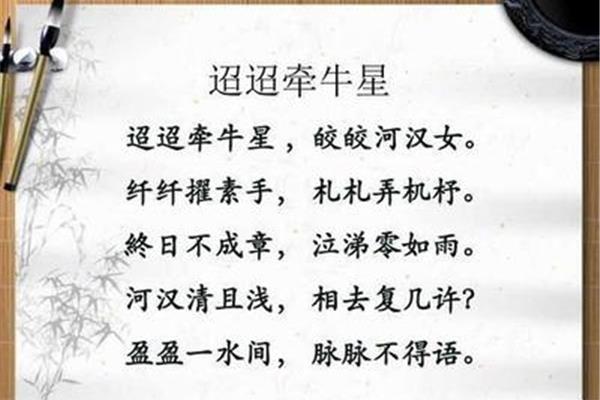 迢迢牵牛星
迢迢牵牛星，皎皎河汉女。
纤纤擢素手，札札弄机杼。
終日不成章，泣涕零如雨。
河汉清且浅，相去复几许?
盈盈一水间，脉脉不得语。